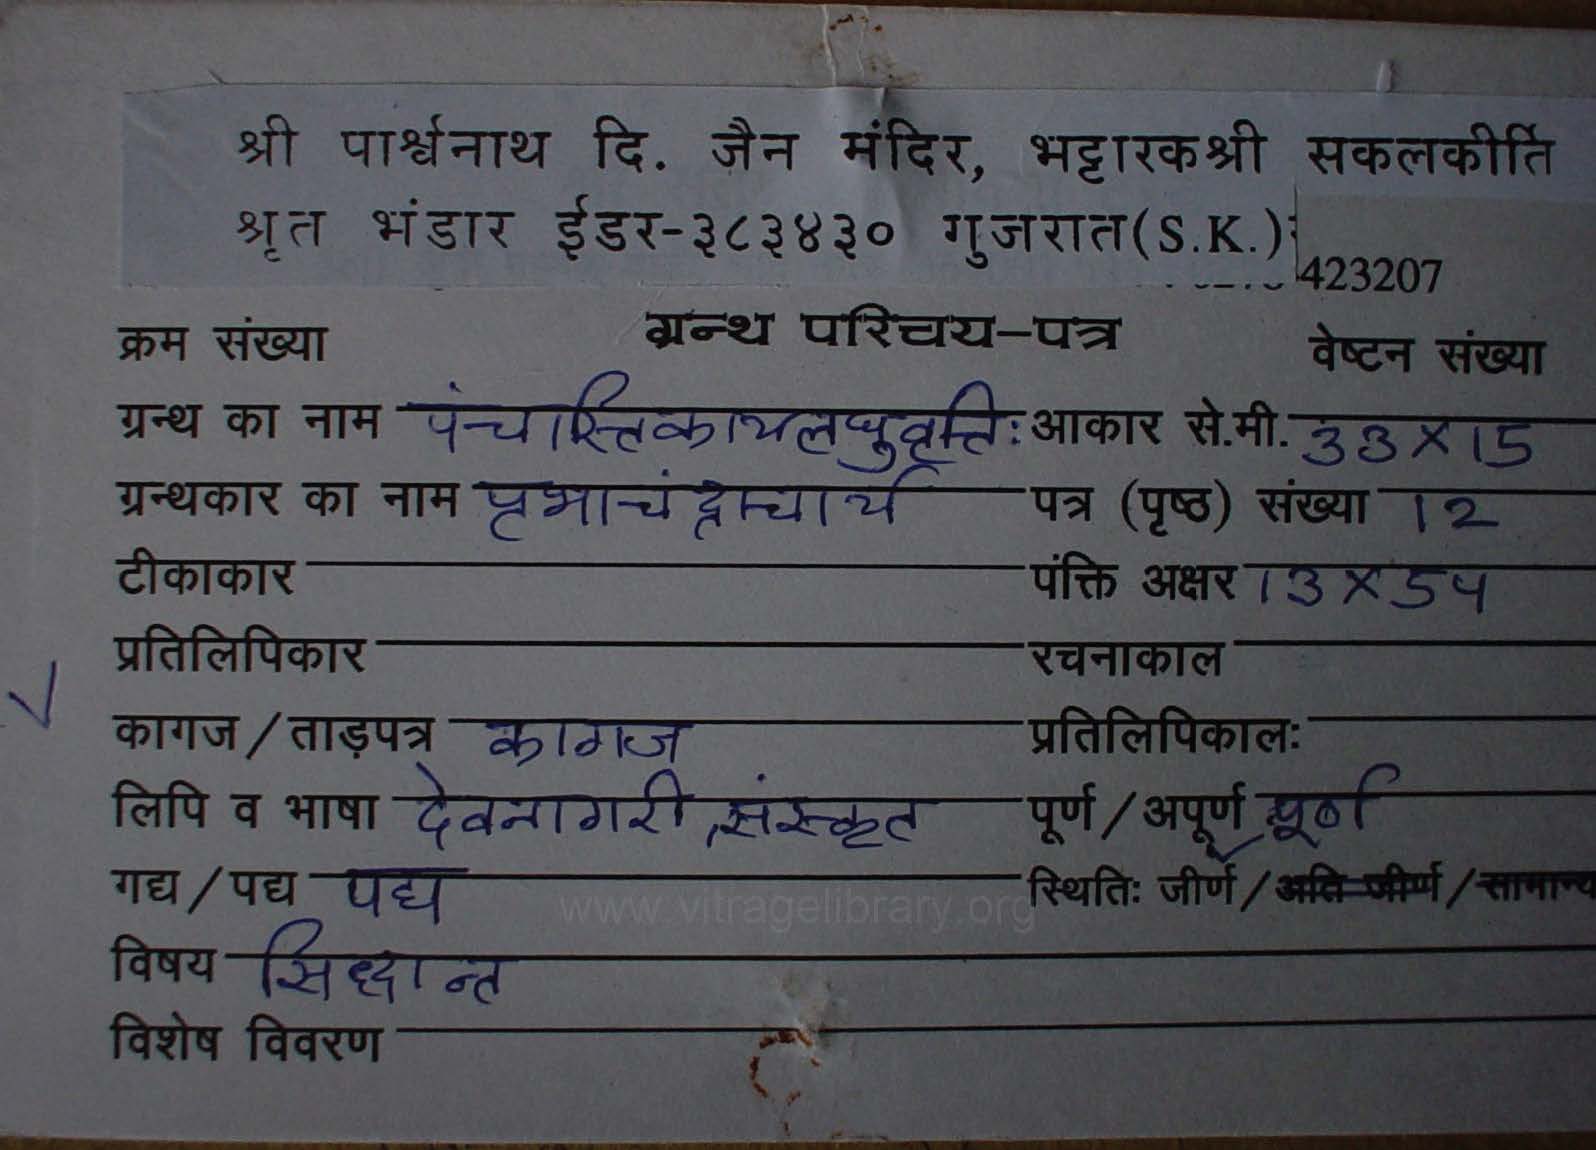 श्री पार्श्वनाथ दि. जैन मंदिर, भट्टारकश्री सकलकीर्ति
श्रृत भंडार ईडर-३८३४३० गुजरात(S.K.)
423207
क्रम संख्या ग्रन्थ परिचय-पत्र वेष्टन संख्या
ग्रन्थ का नाम पंचास्तिकायलघुवृत्तिः आकार से.मी. 33×15
ग्रन्थकार का नाम प्रभाचंद्राचार्य पत्र (पृष्ठ) संख्या 12
टीकाकार पंक्ति अक्षर 13×54
प्रतिलिपिकार रचनाकाल
कागज/ताड़पत्र कागज प्रतिलिपिकालः
लिपि व भाषा देवनागरी,संस्कृत पूर्ण/अपूर्ण पूर्ण
गद्य/पद्य पद्य स्थितिः जीर्ण/अति जीर्ण/सामान्य
www.vitragelibrary.org
विषय सिद्धान्त
विशेष विवरण